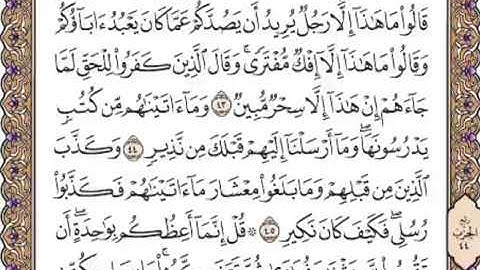 قَالُوا۟ مَا هَـٰذَآ إِلَّا رَجُلٌ يُرِيدُ أَن يَصُدَّكُمْ عَمَّا كَانَ يَعْبُدُ ءَابَآؤُكُمْ
وَقَالُوا۟ مَا هَـٰذَآ إِلَّآ إِفْكٌ مُّفْتَرًى ۚ وَقَالَ ٱلَّذِينَ كَفَرُوا۟ لِلْحَقِّ لَمَّا
جَآءَهُمْ إِنْ هَـٰذَآ إِلَّا سِحْرٌ مُّبِينٌ ٤٣ وَمَآ ءَاتَيْنَـٰهُم مِّن كُتُبٍ
يَدْرُسُونَهَا ۖ وَمَآ أَرْسَلْنَآ إِلَيْهِمْ قَبْلَكَ مِن نَّذِيرٍ ٤٤ وَكَذَّبَ
ٱلَّذِينَ مِن قَبْلِهِمْ وَمَا بَلَغُوا۟ مِعْشَارَ مَآ ءَاتَيْنَـٰهُمْ فَكَذَّبُوا۟
رُسُلِى ۖ فَكَيْفَ كَانَ نَكِيرِ ٤٥ ۞ قُلْ إِنَّمَآ أَعِظُكُم بِوَٰحِدَةٍ ۖ أَن
ربع
الحزب
٤٤